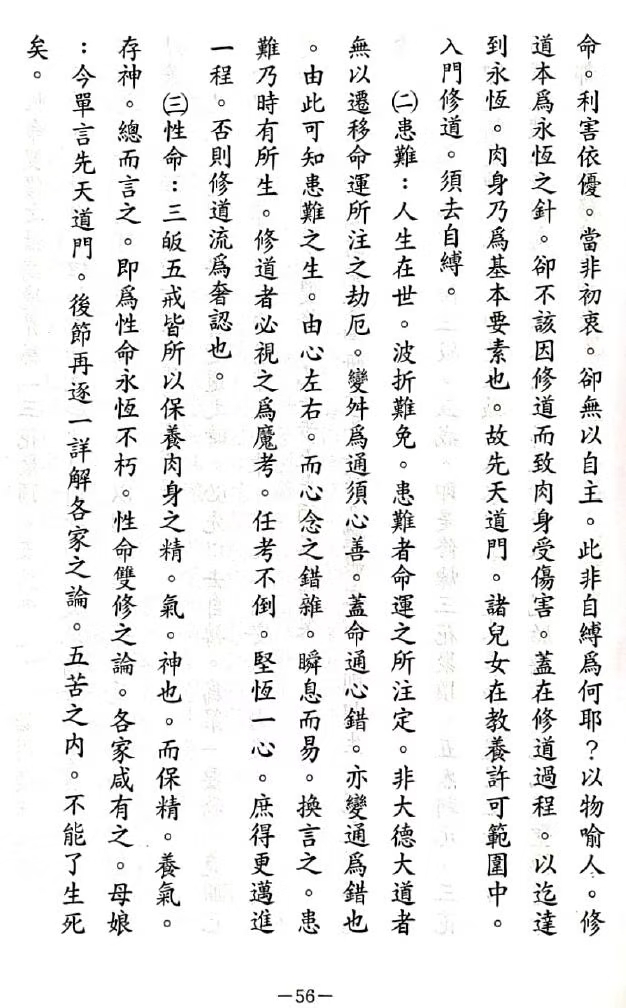 命。利害依優。當非初衷。卻無以自主。此非自縛爲何耶？以物喻人。修
道本爲永恆之針。卻不該因修道而致肉身受傷害。蓋在修道過程。以迄達
到永恆。肉身乃爲基本要素也。故先天道門。諸兒女在教養許可範圍中。
入門修道。須去自縛。
㈡患難：人生在世。波折難免。患難者命運之所注定。非大德大道者
無以遷移命運所注之劫厄。變舛爲通須心善。蓋命通心錯。亦變通爲錯也
。由此可知患難之生。由心左右。而心念之錯雜。瞬息而易。換言之。患
難乃時有所生。修道者必視之爲魔考。任考不倒。堅恆一心。庶得更邁進
一程。否則修道流爲奢認也。
㈢性命：三皈五戒皆所以保養肉身之精。氣。神也。而保精。養氣。
存神。總而言之。即爲性命永恆不朽。性命雙修之論。各家咸有之。母娘
：今單言先天道門。後節再逐一詳解各家之論。五苦之內。不能了生死
矣。
—56—